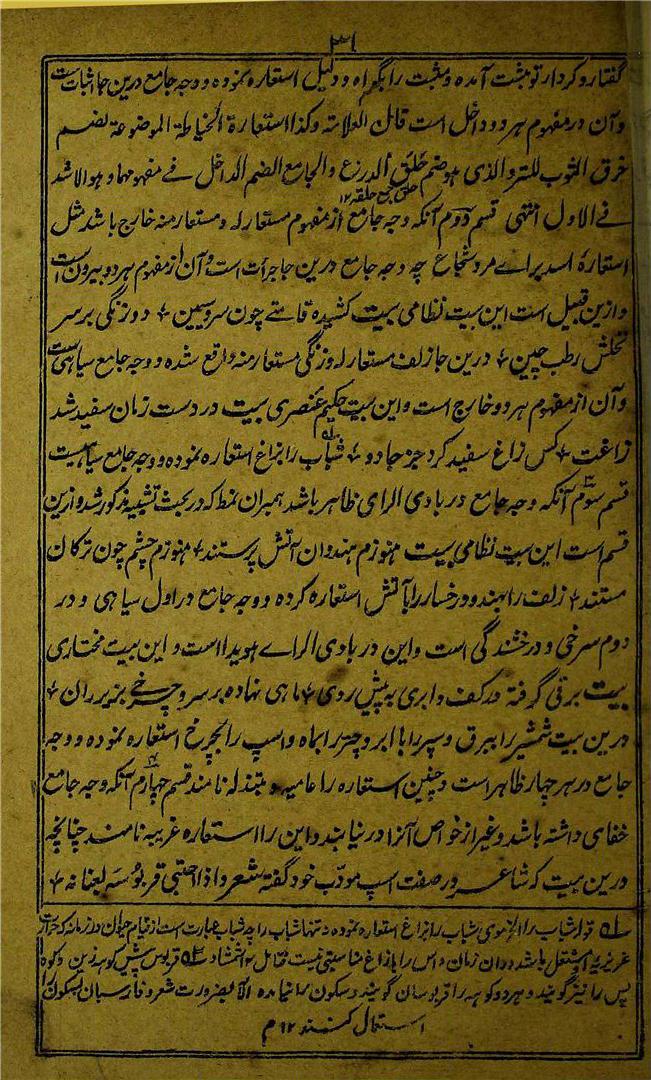 ٣١
گفتار و کردار تو مثبت آمده و مثبت را بگواه و دلیل استعاره نموده و وجه جامع درین جا اثبات است
و آن در مفهوم هر دو داخل است قال العلامة وکذا استعارة الخیاطة الموضوعة لضم
خرق الثوب للسرد الذی هو ضم حلق الدرع والجامع الضم الداخل فی مفهومهما وهو الاشد
حلق جمع حلقه ۱۲
فی الاول انتهی قسم دوم آنکه وجه جامع از مفهوم مستعار له و مستعار منه خارج باشد مثل
استعارهٔ اسد برای مرد شجاع چه وجه جامع درین جا جرأت است و آن از مفهوم هر دو بیرون است
و ازین قبیل است این بیت نظامی بیت کشیده قامتے چون سرو سیمین ؛ دو زنگی بر سر
نخلش رطب چین ؛ درین جا زلف مستعار له و زنگی مستعار منه واقع شده و وجه جامع سیاهی است
و آن از مفهوم هر دو خارج است و این بیت حکیم عنصری بیت در دست زمان سفید شد
زاغت ؛ کس زاغ سفید کرد جز جادو ؛ شباب را بزاغ استعاره نموده و وجه جامع سیاهیست
قسم سوم آنکه وجه جامع در بادی الرای ظاهر باشد همبران نمط که در بحث تشبیه مذکور شد و ازین
قسم است این بیت نظامی بیت هنوزم هندوان آتش پرستند ؛ هنوزم چشم چون ترکان
مستند ؛ زلف را بهندو و رخسار را بآتش استعاره کرده و وجه جامع در اول سیاهی و در
دوم سرخی و درخشندگی است و این در بادی الرای هویدا است و این بیت مختاری
بیت برقی گرفته در کف و ابری به پیش روی ؛ ماهی نهاده بر سر و چرخی بزیر ران ؛
درین بیت شمشیر را ببرق و سپر را با ابر و چتر را بماه و اسپ را بچرخ استعاره نموده و وجه
جامع در هر چهار ظاهر است و چنین استعاره را عامیه و مبتذله نامند قسم چهارم آنکه وجه جامع
خفای داشته باشد و غیر از خواص آنرا در نیابند و این را استعاره غریبه نامند چنانچه
درین بیت که شاعر در صفت اسپ مودّب خود گفته شعر و اذا احتبی قربوسه بعنانه ؛
قوله شباب را الخ موی شباب را بزاغ استعاره نموده نه تنها شباب را چه شباب عبارت است از قیام حیوان در زمانه که حرارت
غریزیه او مشتعل باشد و آن زمان و اس را بازاغ مناسبتی نیست فتامل ۱۲ قربوس پیش کوهه زین و کوهه
پس را نیز گویند و هر دو کوهه را قربوسان گویند و سکون را نیامده الا بضرورت شعر و فارسیان بسکون را
استعمال کنند ۱۲ م